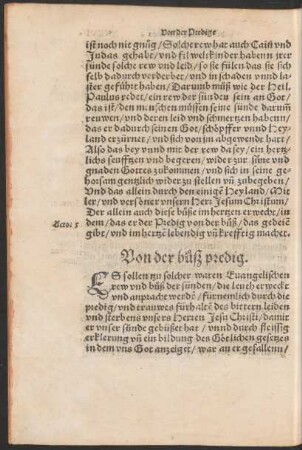 Von der Predigt
ist noch nie gnůg / Solche rew hat auch Caín vnd
Judas gehabt / vnd fil weltkinder habenn jrer
sünde solche rew vnd leid / so sie fülen das sie sich
selb dadurch verderbet / vnd in schaden vnnd la-
ster gefűhrt haben / Darumb můß wie der Heil.
Paulus redet / ein rew der sünden sein an Got /
das ist / den menschen müssen seine sünde darumm
rewen / vnd deren leid vnd schmertzen habenn /
das er dadurch seinen Got / schöpffer vnnd Hey-
land erzürnet / vnd sich von jm abgewendt hat /
Also das bey vnnd mit der rew da sey / ein hertz-
lichs seufftzen vnd begeren / wider zur sűne vnd
gnaden Gottes zukommen / vnd sich in seine ge-
horsam gentzlich wider zu stellen vñ zubegeben /
Vnd das allein durch den einigẽ Heyland / Mit-
ler / vnd versöner vnsern Herr Jesum Christum /
Der allein auch dise bűße im hertzen erweckt / in-
dem / das er der Predig von der bűß / das gedeiẽ
gibt / vnd im hertzẽ lebendig vñ krefftig machet.
Von der bűß predig.
ES sollen zu solcher waren Euangelischen
rew vnd bűß der sünden / die leuth erweckt
vnd anpracht werdẽ / fürnemlich durch die
predig / vnd trauwes fürhaltẽ des bittern leiden
vnd sterbens vnsers Herren Jesu Christi / damit
er vnser sünde gebűsset hat / vnnd durch fleissig
erklerung vñ ein bildung des Götlichen gesetzes
in dem vns Got anzeiget / war an er gefallenn /